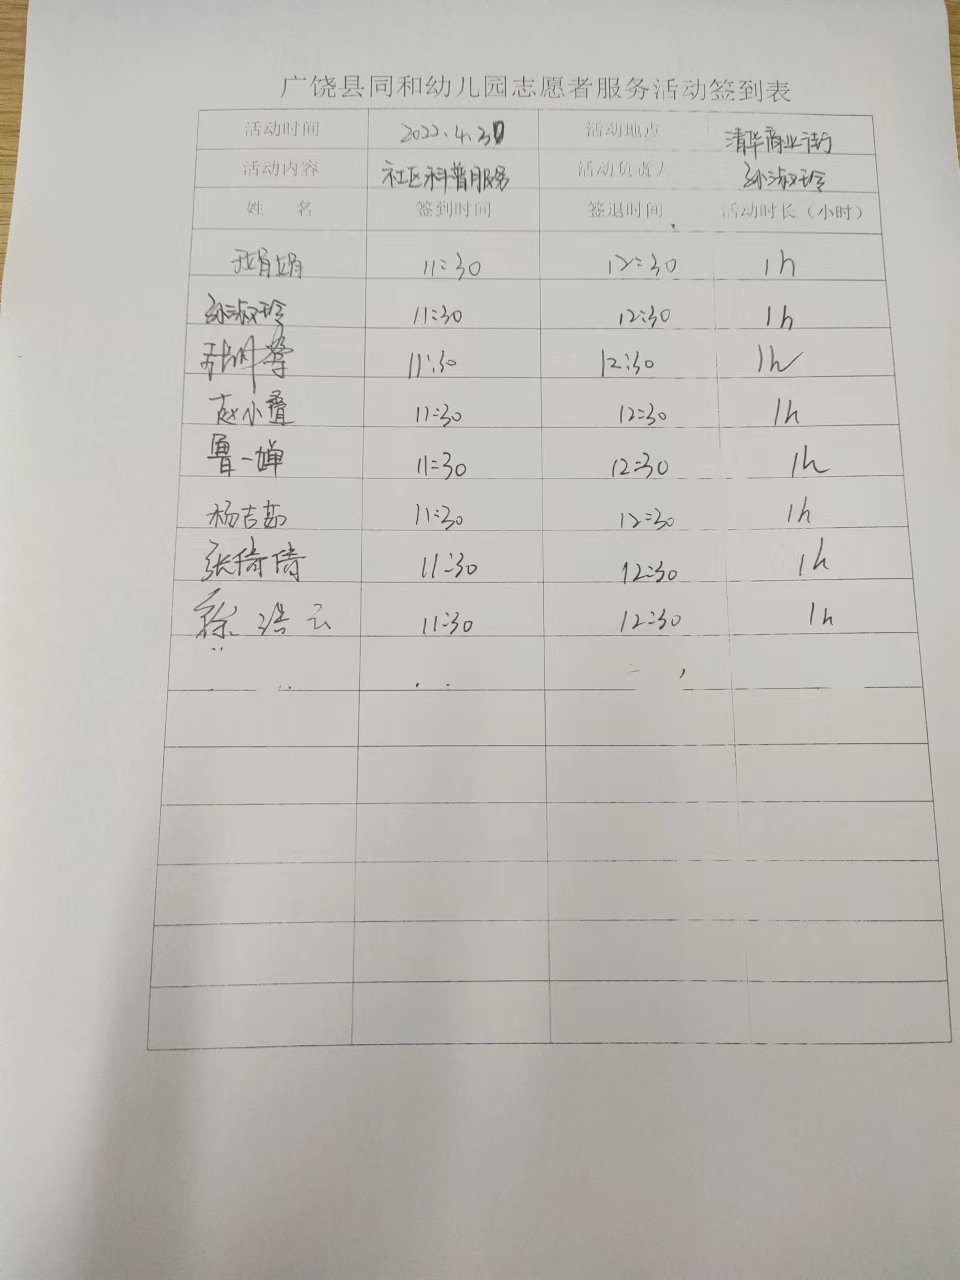 广饶县同和幼儿园志愿者服务活动签到表
活动时间 2022.4.30 活动地点 清华商业街
活动内容 社区科普服务 活动负责人 孙淑玲
姓 名 签到时间 签退时间 活动时长（小时）
娟娟 11:30 12:30 1h
孙淑玲 11:30 12:30 1h
11:30 12:30 1h
赵小叠 11:30 12:30 1h
鲁一婵 11:30 12:30 1h
杨吉茹 11:30 12:30 1h
张倚倚 11:30 12:30 1h
徐浩云 11:30 12:30 1h